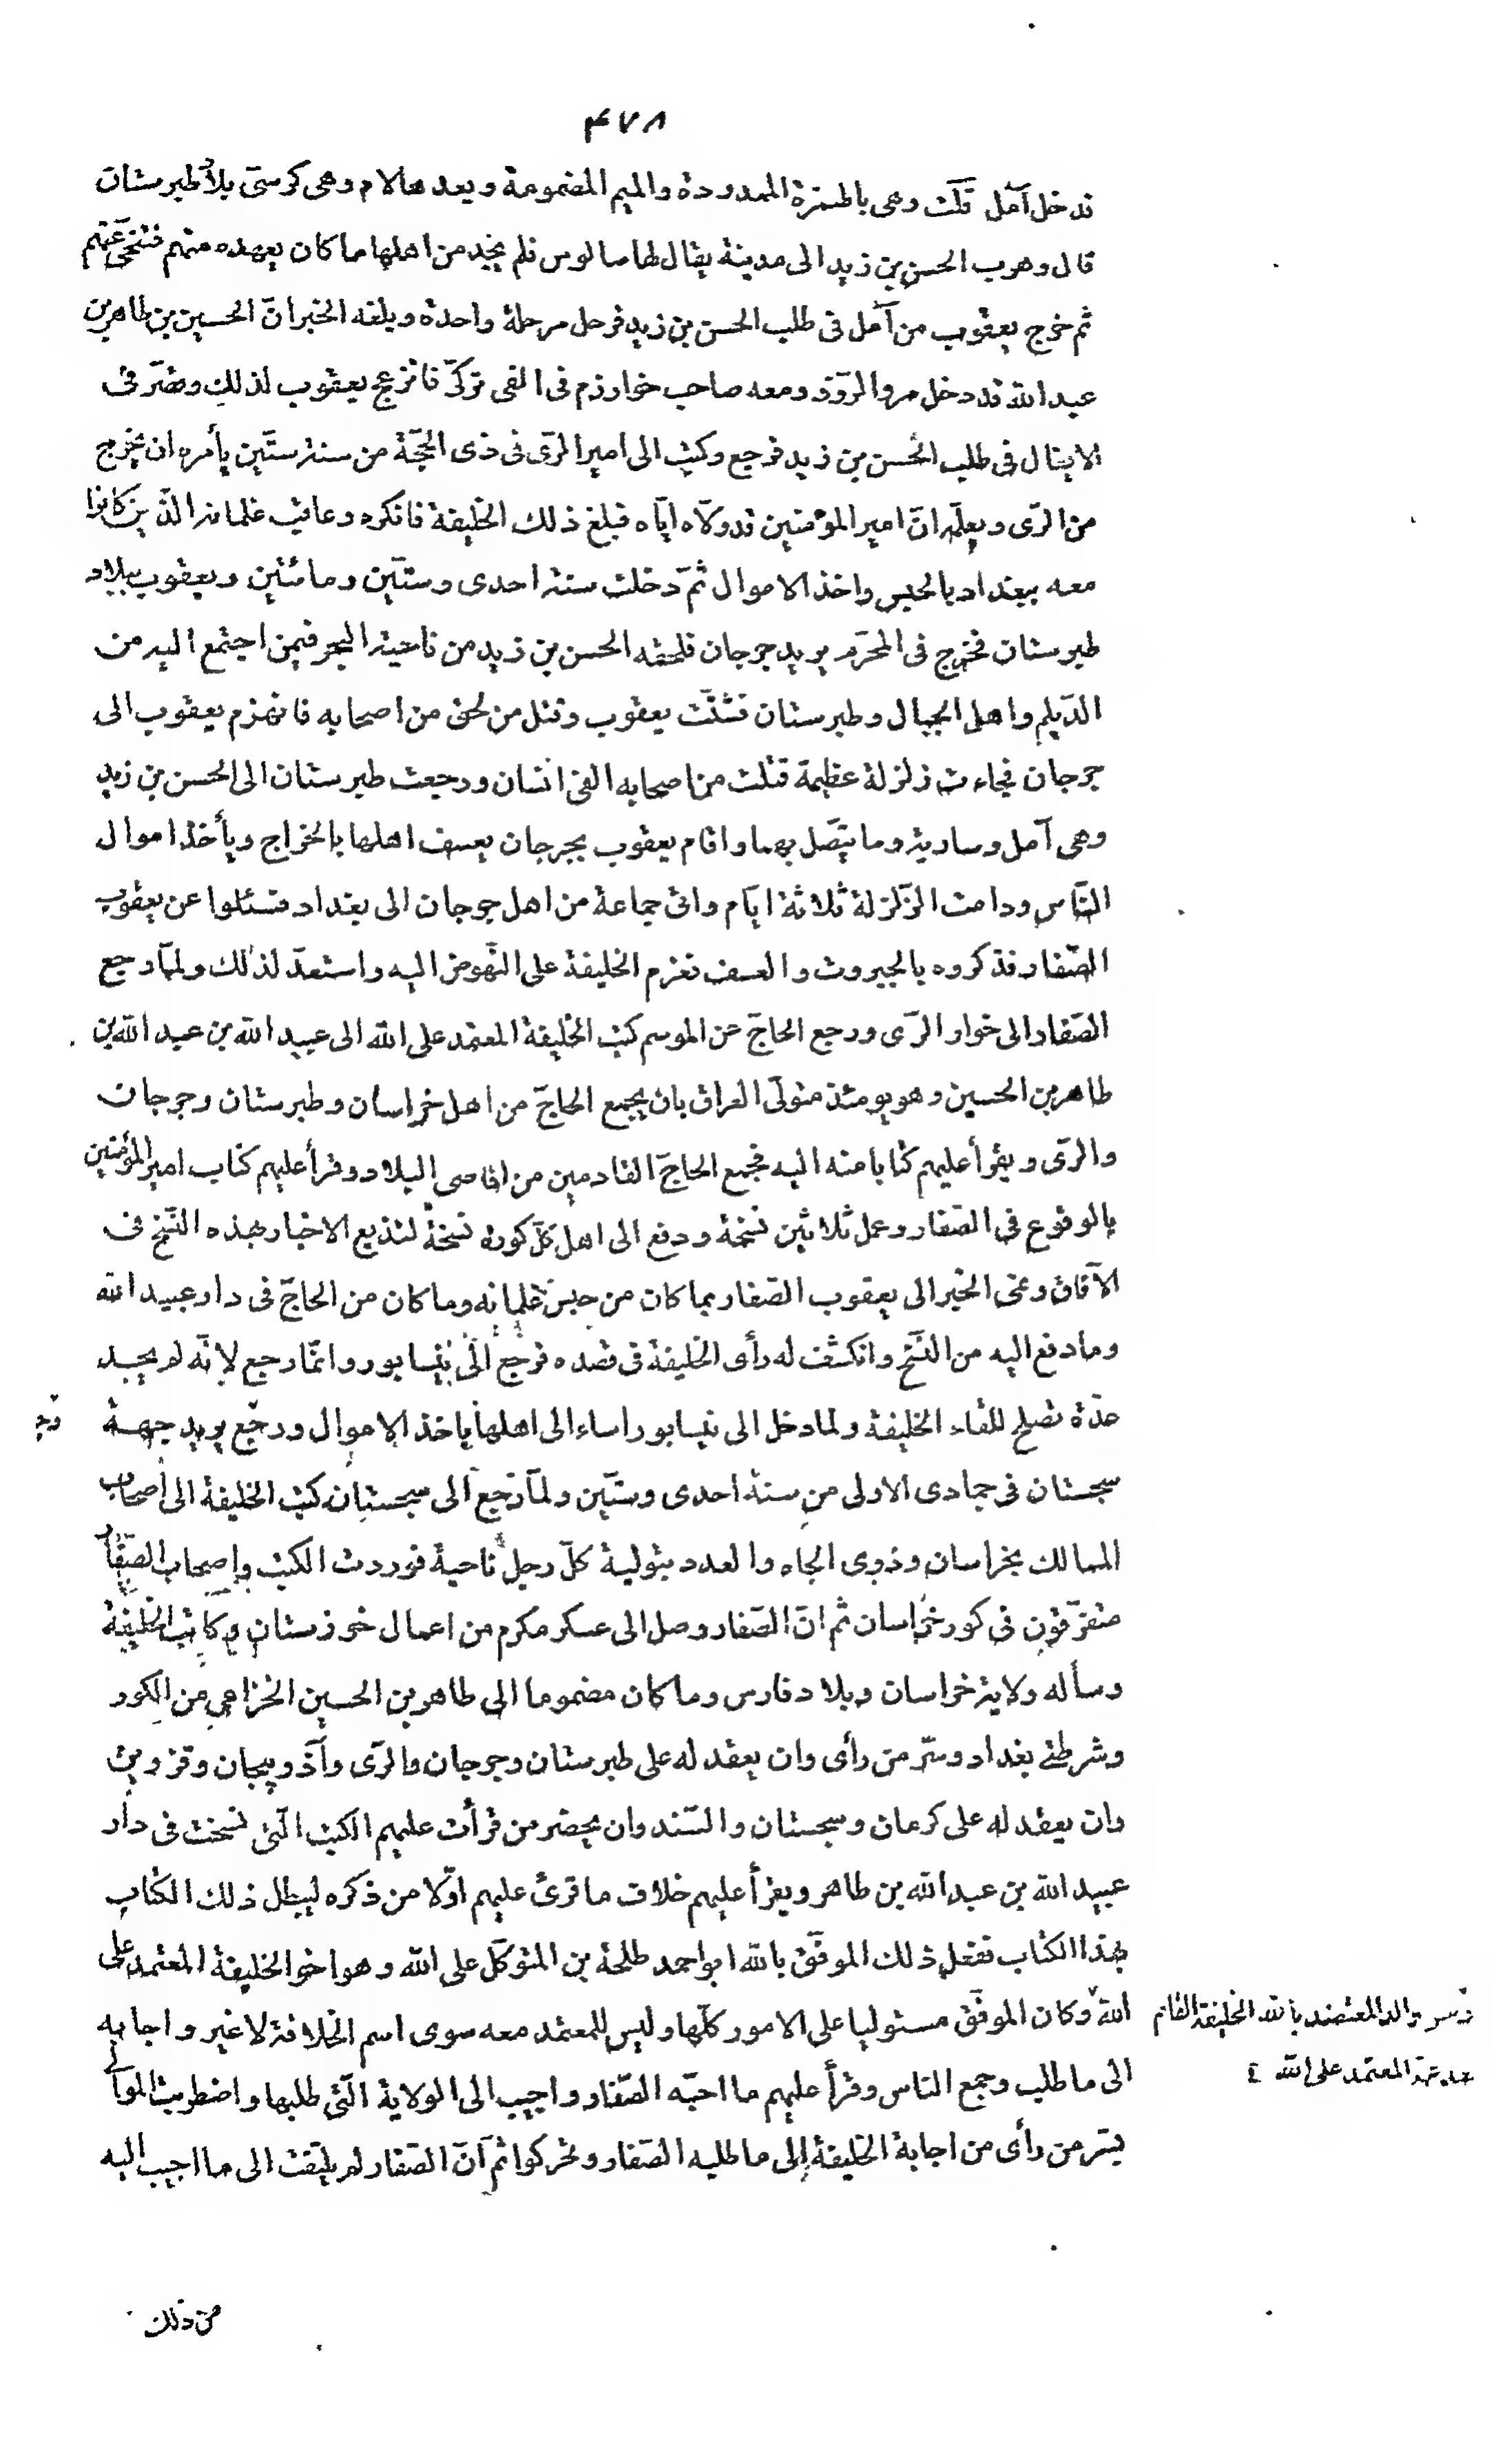 ۴۷۸
قد دخل آمل قلت وهى بالهمزة الممدودة والميم المضمومة وبعدها لام وهى كرسىّ بلاد طبرستان
قال وهرب الحسن بن زيد الى مدينة يقال لها سالوس فلم يجد من اهلها ما كان يعهده منهم فتنحّى عنهم
ثم خرج يعقوب من آمل فى طلب الحسن بن زيد فرحل مرحلة واحدة وبلغه الخبر انّ الحسين بن طاهر بن
عبد الله قد دخل مرو الرّوذ ومعه صاحب خوارزم فى الفى تركىّ فانزعج يعقوب لذلك وقصّر فى
الايغال فى طلب الحسن بن زيد فرجع وكتب الى امير الرّى فى ذى الحجّة من سنة ستّين يأمره ان يخرج
من الرّى ويعلمه انّ امير المؤمنين قد ولّاه ايّاه فبلغ ذلك الخليفة فانكره وعاقب غلمانه الّذين كانوا
معه ببغداد بالحبس واخذ الاموال ثمّ دخلت سنة احدى وستّين ومائتين ويعقوب ببلاد
طبرستان فخرج فى المحرّم يريد جرجان فلحقه الحسن بن زيد من ناحية البحر فيمن اجتمع اليه من
الدّيلم واهل الجبال وطبرستان فشتّت يعقوب وقتل من لحق من اصحابه فانهزم يعقوب الى
جرجان فجاءت زلزلة عظيمة قتلت من اصحابه الفى انسان ورجعت طبرستان الى الحسن بن زيد
وهى آمل وسارية وما يتّصل بهما واقام يعقوب بجرجان يعسف اهلها بالخراج ويأخذ اموال
النّاس ودامت الزّلزلة ثلاثة ايّام واتى جماعة من اهل جرجان الى بغداد فسئلوا عن يعقوب
الصّفار فذكروه بالجبروت والعسف فعزم الخليفة على النّهوض اليه واستعدّ لذلك ولمّا رجع
الصّفار الى خوار الرّى ورجع الحاجّ عن الموسم كتب الخليفة المعتمد على الله الى عبيد الله بن عبد الله بن
طاهر بن الحسين وهو يومئذ متولّى العراق بان يجمع الحاجّ من اهل خراسان وطبرستان وجرجان
والرّى ويقرأ عليهم كتابا منه اليه فجمع الحاجّ القادمين من اقاصى البلاد وقرأ عليهم كتاب امير المؤمنين
بالوقوع فى الصّفار وعمل ثلاثين نسخة ودفع الى اهل كلّ كورة نسخة لتذيع الاخبار بهذه النّسخ فى
الآفاق ونمى الخبر الى يعقوب الصّفار بما كان من حبس غلمانه وما كان من الحاجّ فى دار عبيد الله
وما دفع اليه من النّسخ وانكشف له رأى الخليفة فى قصده فرجع الى نيسابور وانّما رجع لانّه لم يجد
عدّة تصلح للقاء الخليفة ولما دخل الى نيسابور اساء الى اهلها ياخذ الاموال ورجع يريد جهة
سجستان فى جمادى الاولى من سنة احدى وستّين ولمّا رجع الى سجستان كتب الخليفة الى اصحاب
الممالك بخراسان وذوى الجاه والعدد بتولية كلّ رجل ناحية فوردت الكتب واصحاب الصّفّار
متفرّقون فى كور خراسان ثم انّ الصّفار وصل الى عسكر مكرم من اعمال خوزستان وكاتب الخليفة
وسأله ولاية خراسان وبلاد فارس وما كان مضموما الى طاهر بن الحسين الخزاعى من الكور
وشرطتى بغداد وسرّ من رأى وان يعقد له على طبرستان وجرجان والرّى وآذربيجان وقزوين
وان يعقد له على كرمان وسجستان والسّند وان يحضر من قرأت عليهم الكتب الّتى نسخت فى دار
عبيد الله بن عبد الله بن طاهر ويقرأ عليهم خلاف ما قرئ عليهم اوّلا من ذكره ليبطل ذلك الكتاب
بهذا الكتاب ففعل ذلك الموفّق بالله ابو احمد طلحة بن المتوكّل على الله وهو اخو الخليفة المعتمد على
الله وكان الموفّق مستوليا على الامور كلّها وليس للمعتمد معه سوى اسم الخلافة لا غير واجابه
والد المعتضد بالله الخليفة القائم
بعد عمّه المعتمد على الله
الى ما طلب وجمع الناس وقرأ عليهم ما احبّه الصّفار واجيب الى الولاية الّتى طلبها واضطربت الموالى
بسرّ من رأى من اجابة الخليفة الى ما طلبه الصّفار وتحركوا ثمّ انّ الصّفار لم يلتفت الى ما اجيب اليه
من ذلك